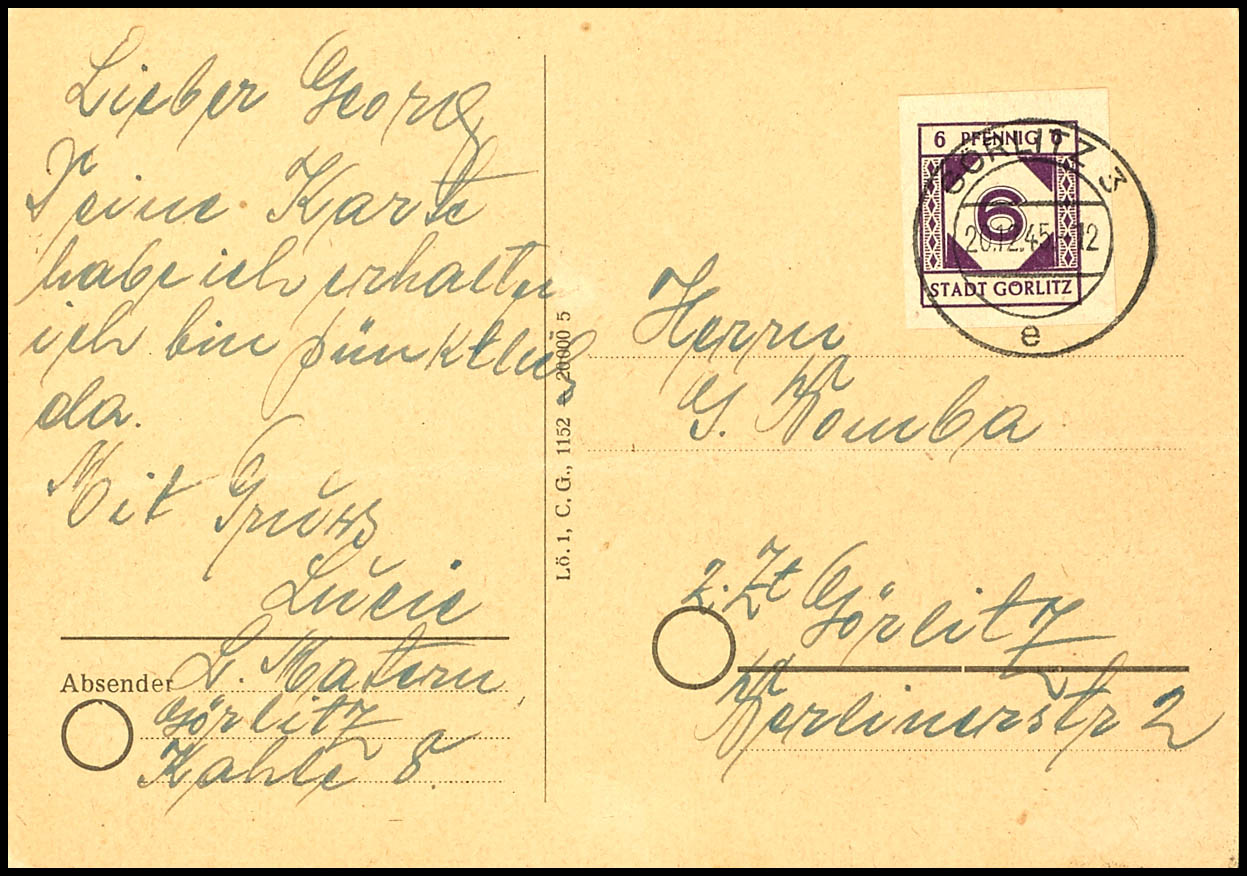 Lieber Georg
Deine Karte
habe ich erhalten
ich bin pünktlich
da.
Mit Gruss
Lucie
Absender L. Matern
Görlitz
Kahle 8.
Lö. 1, C. G., 1152 20000 5
6 PFENNIG 6
6
STADT GÖRLITZ
GÖRLITZ 3
20.12.45. 12
e
Herrn
G. Bomba
z. Zt Görlitz
Berlinerstr 2